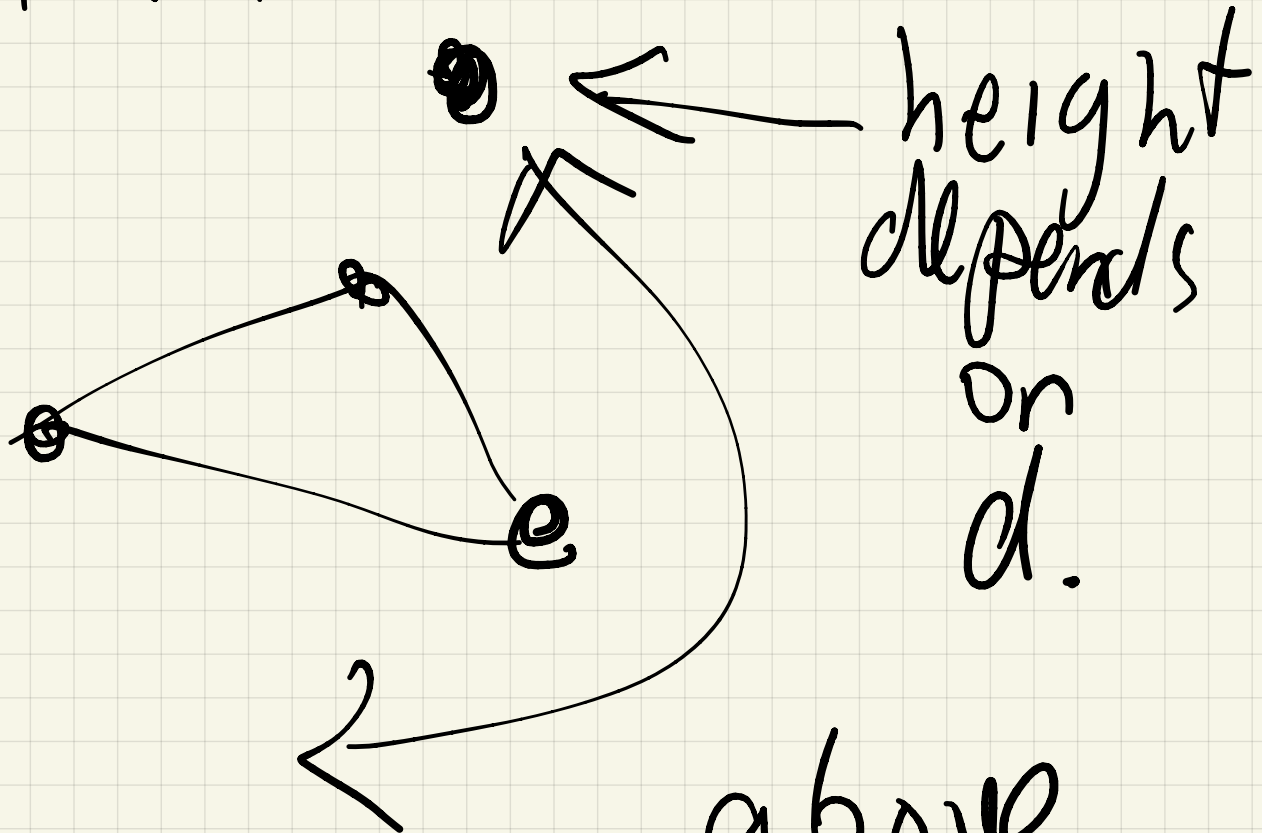 height
depends
on
d.
above